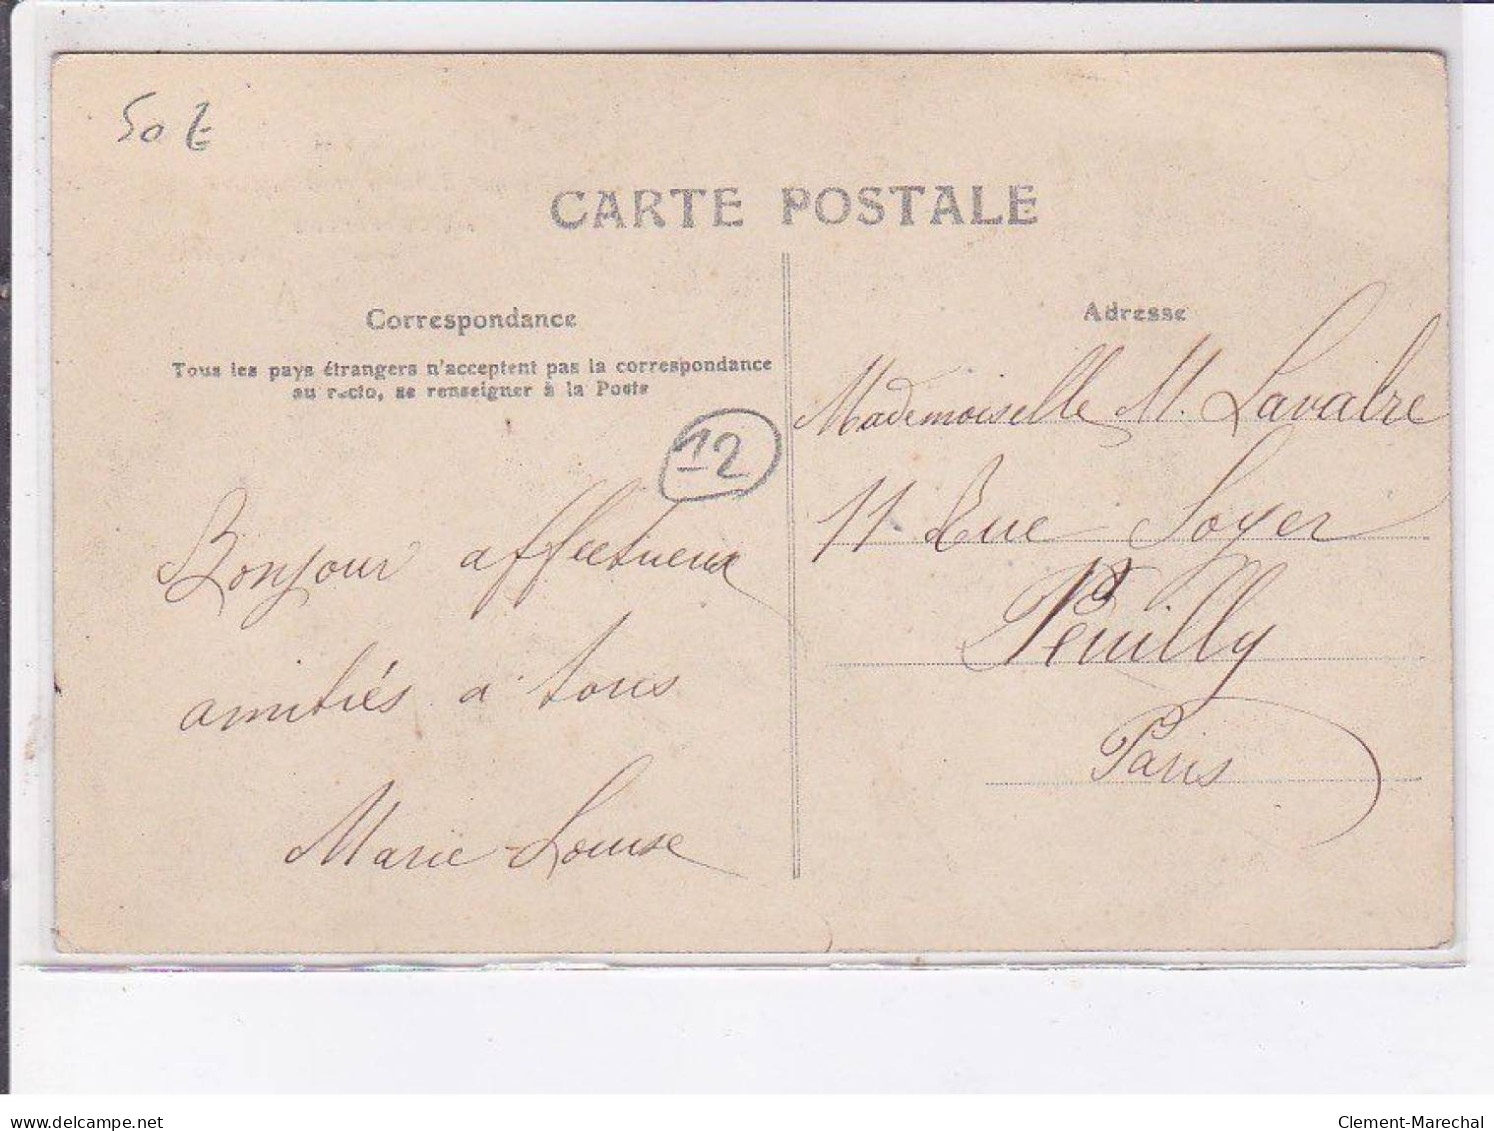 50 E
CARTE POSTALE
Correspondance
Tous les pays étrangers n'acceptent pas la correspondance
au recto, se renseigner à la Poste
12
Bonjour affectueux
amitiés a tous
Marie-Louise
Adresse
Mademoiselle M. Lavalre
11 Rue Soyer
Neuilly
Paris
www.delcampe.net
Clement-Marechal